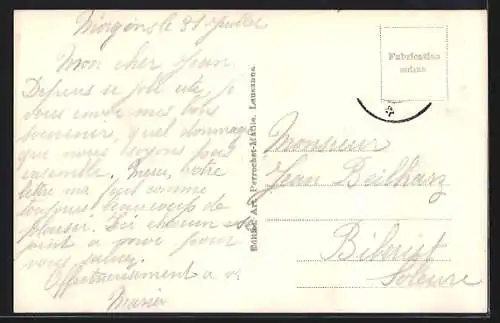 Morgins le 31 Juillet
Mon cher Jean
Depuis se joli site, je
vous envoi mes bons
souvenir, quel dommage
que nous soyons pas
ensemble. Merci, votre
lettre ma fait comme
toujours beaucoup de
plaisir. Ici chacun se
joint a moi pour
vous saluer.
Affectueusement a v.
Marier
Edition Art. Perrochet-Matile, Lausanne
Fabrication
suisse
Monsieur
Jean Beilharz
Biberist
Soleure